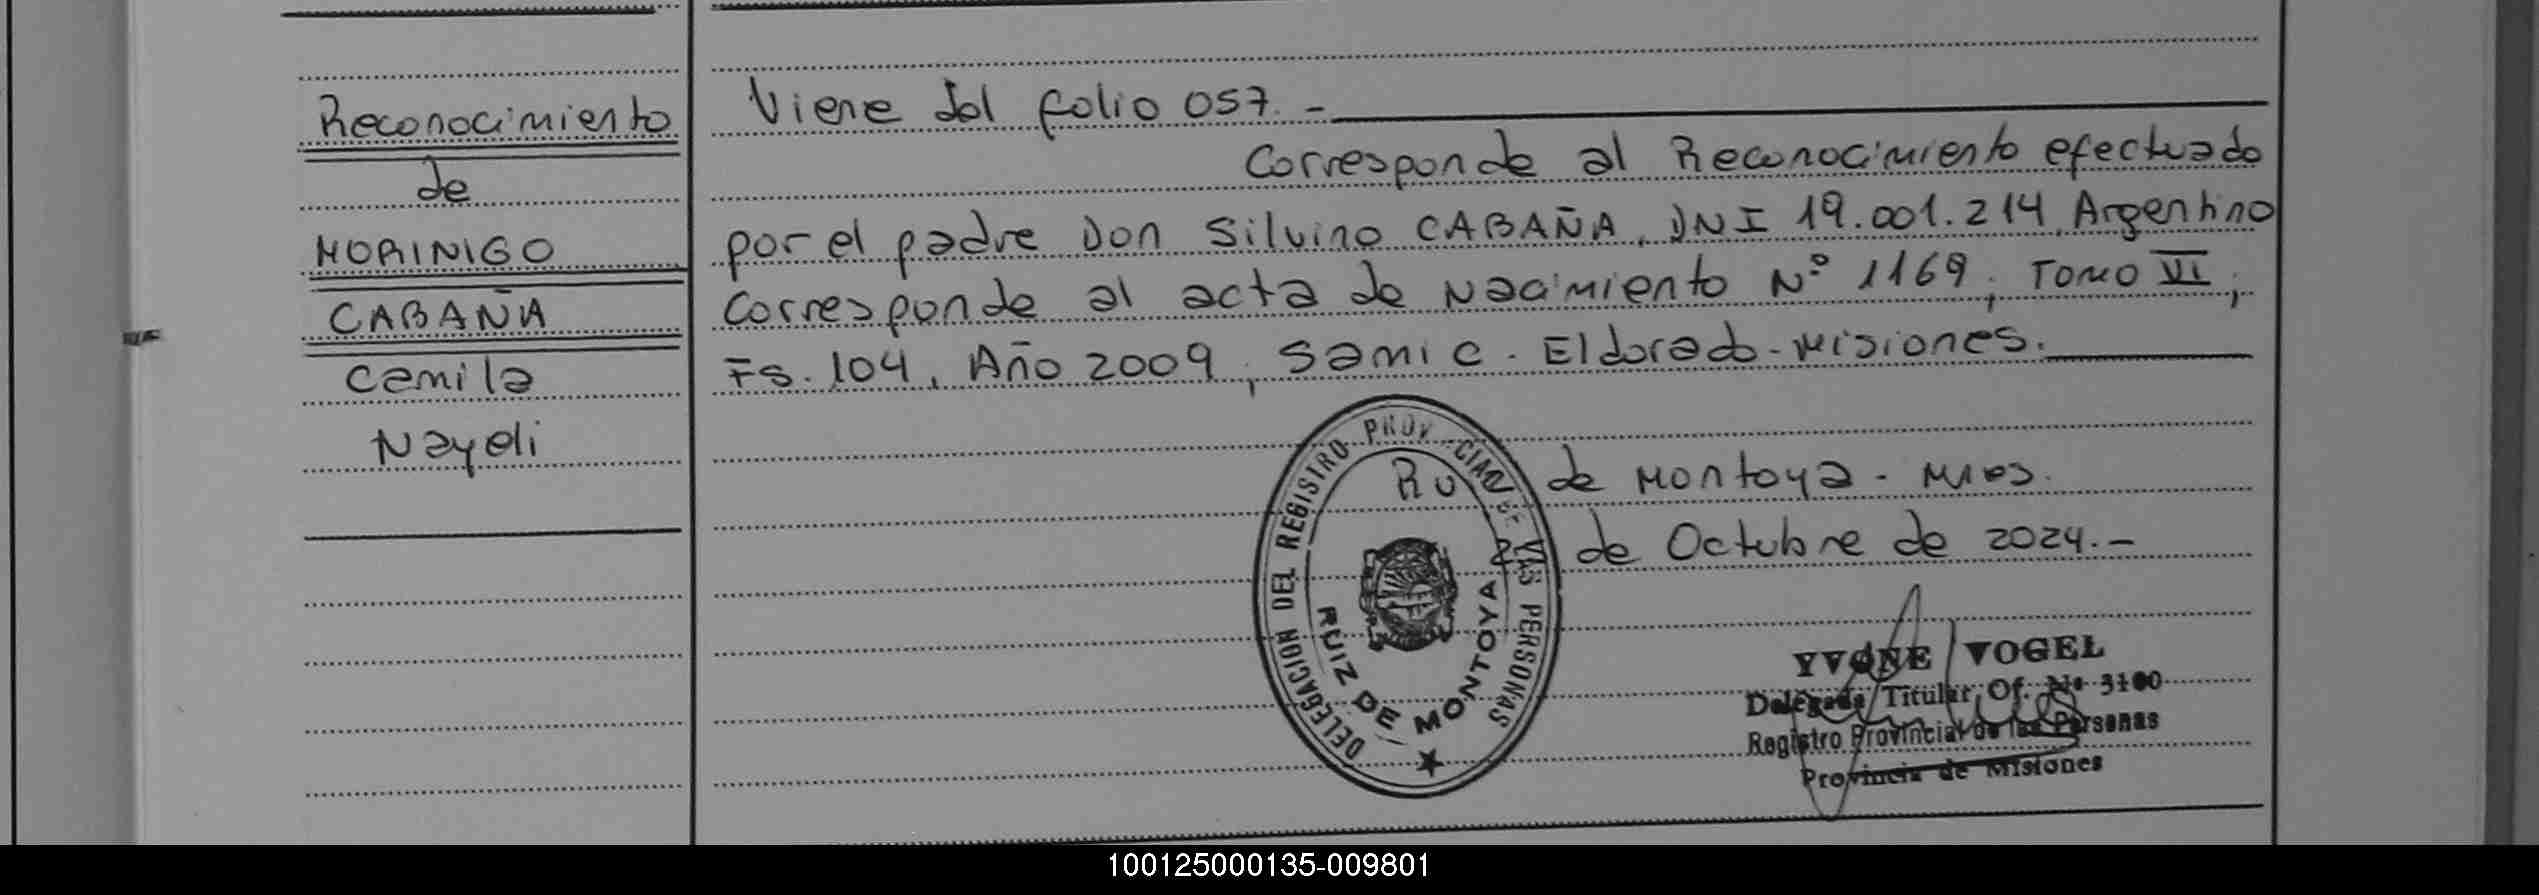 Reconocimiento
de
MORINIGO
CABAÑA
Camila
Nayeli
Viene del folio 057.-
Corresponde al Reconocimiento efectuado
por el padre Don Silvino CABAÑA, DNI 19.001.214, Argentino
Corresponde al acta de Nacimiento Nº 1169, Tomo VI,
Fs. 104, Año 2009, Samic. Eldorado-Misiones.
de Montoya - Mnes.
de Octubre de 2024.-
DELEGACION DEL REGISTRO PROV CIAL DE LAS PERSONAS
RUIZ DE MONTOYA
YVONE VOGEL
Delegada Titular Of. Nº 3100
Registro Provincial de las Personas
Provincia de Misiones
100125000135-009801